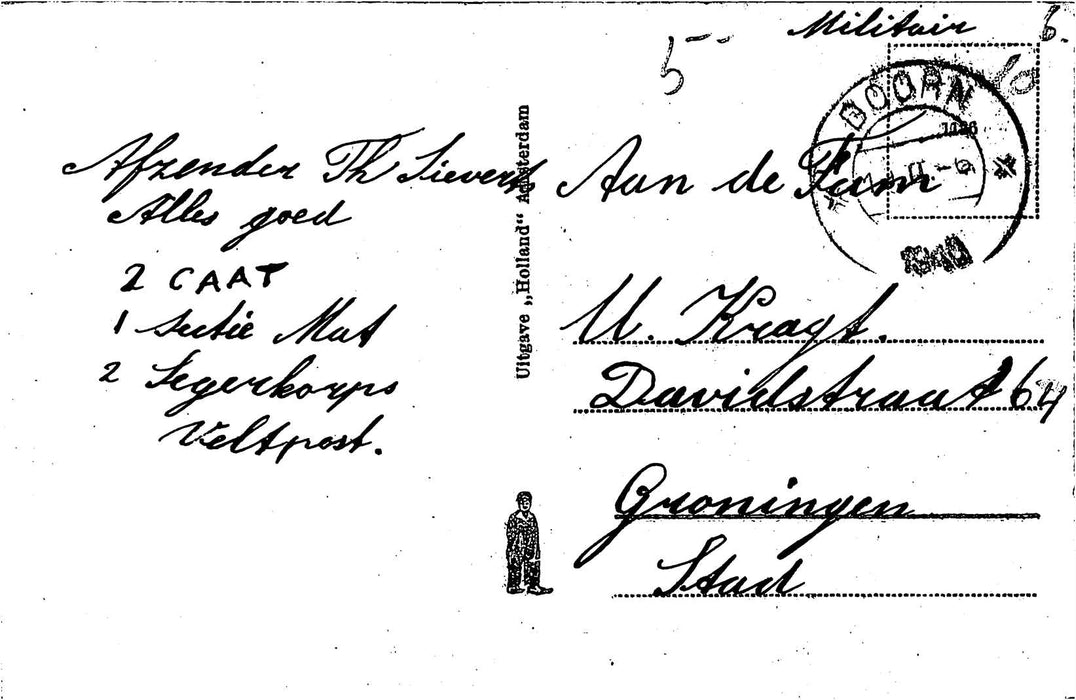 Militair
5--
DOORN
1940
Afzender Th Sieverts
Alles goed
2 CAAT
1 sectie Mut
2 Legerkorps
Veltpost.
Uitgave „Holland“ Amsterdam
Aan de Fam
U. Kragt.
Davidstraat 64
Groningen
Stad